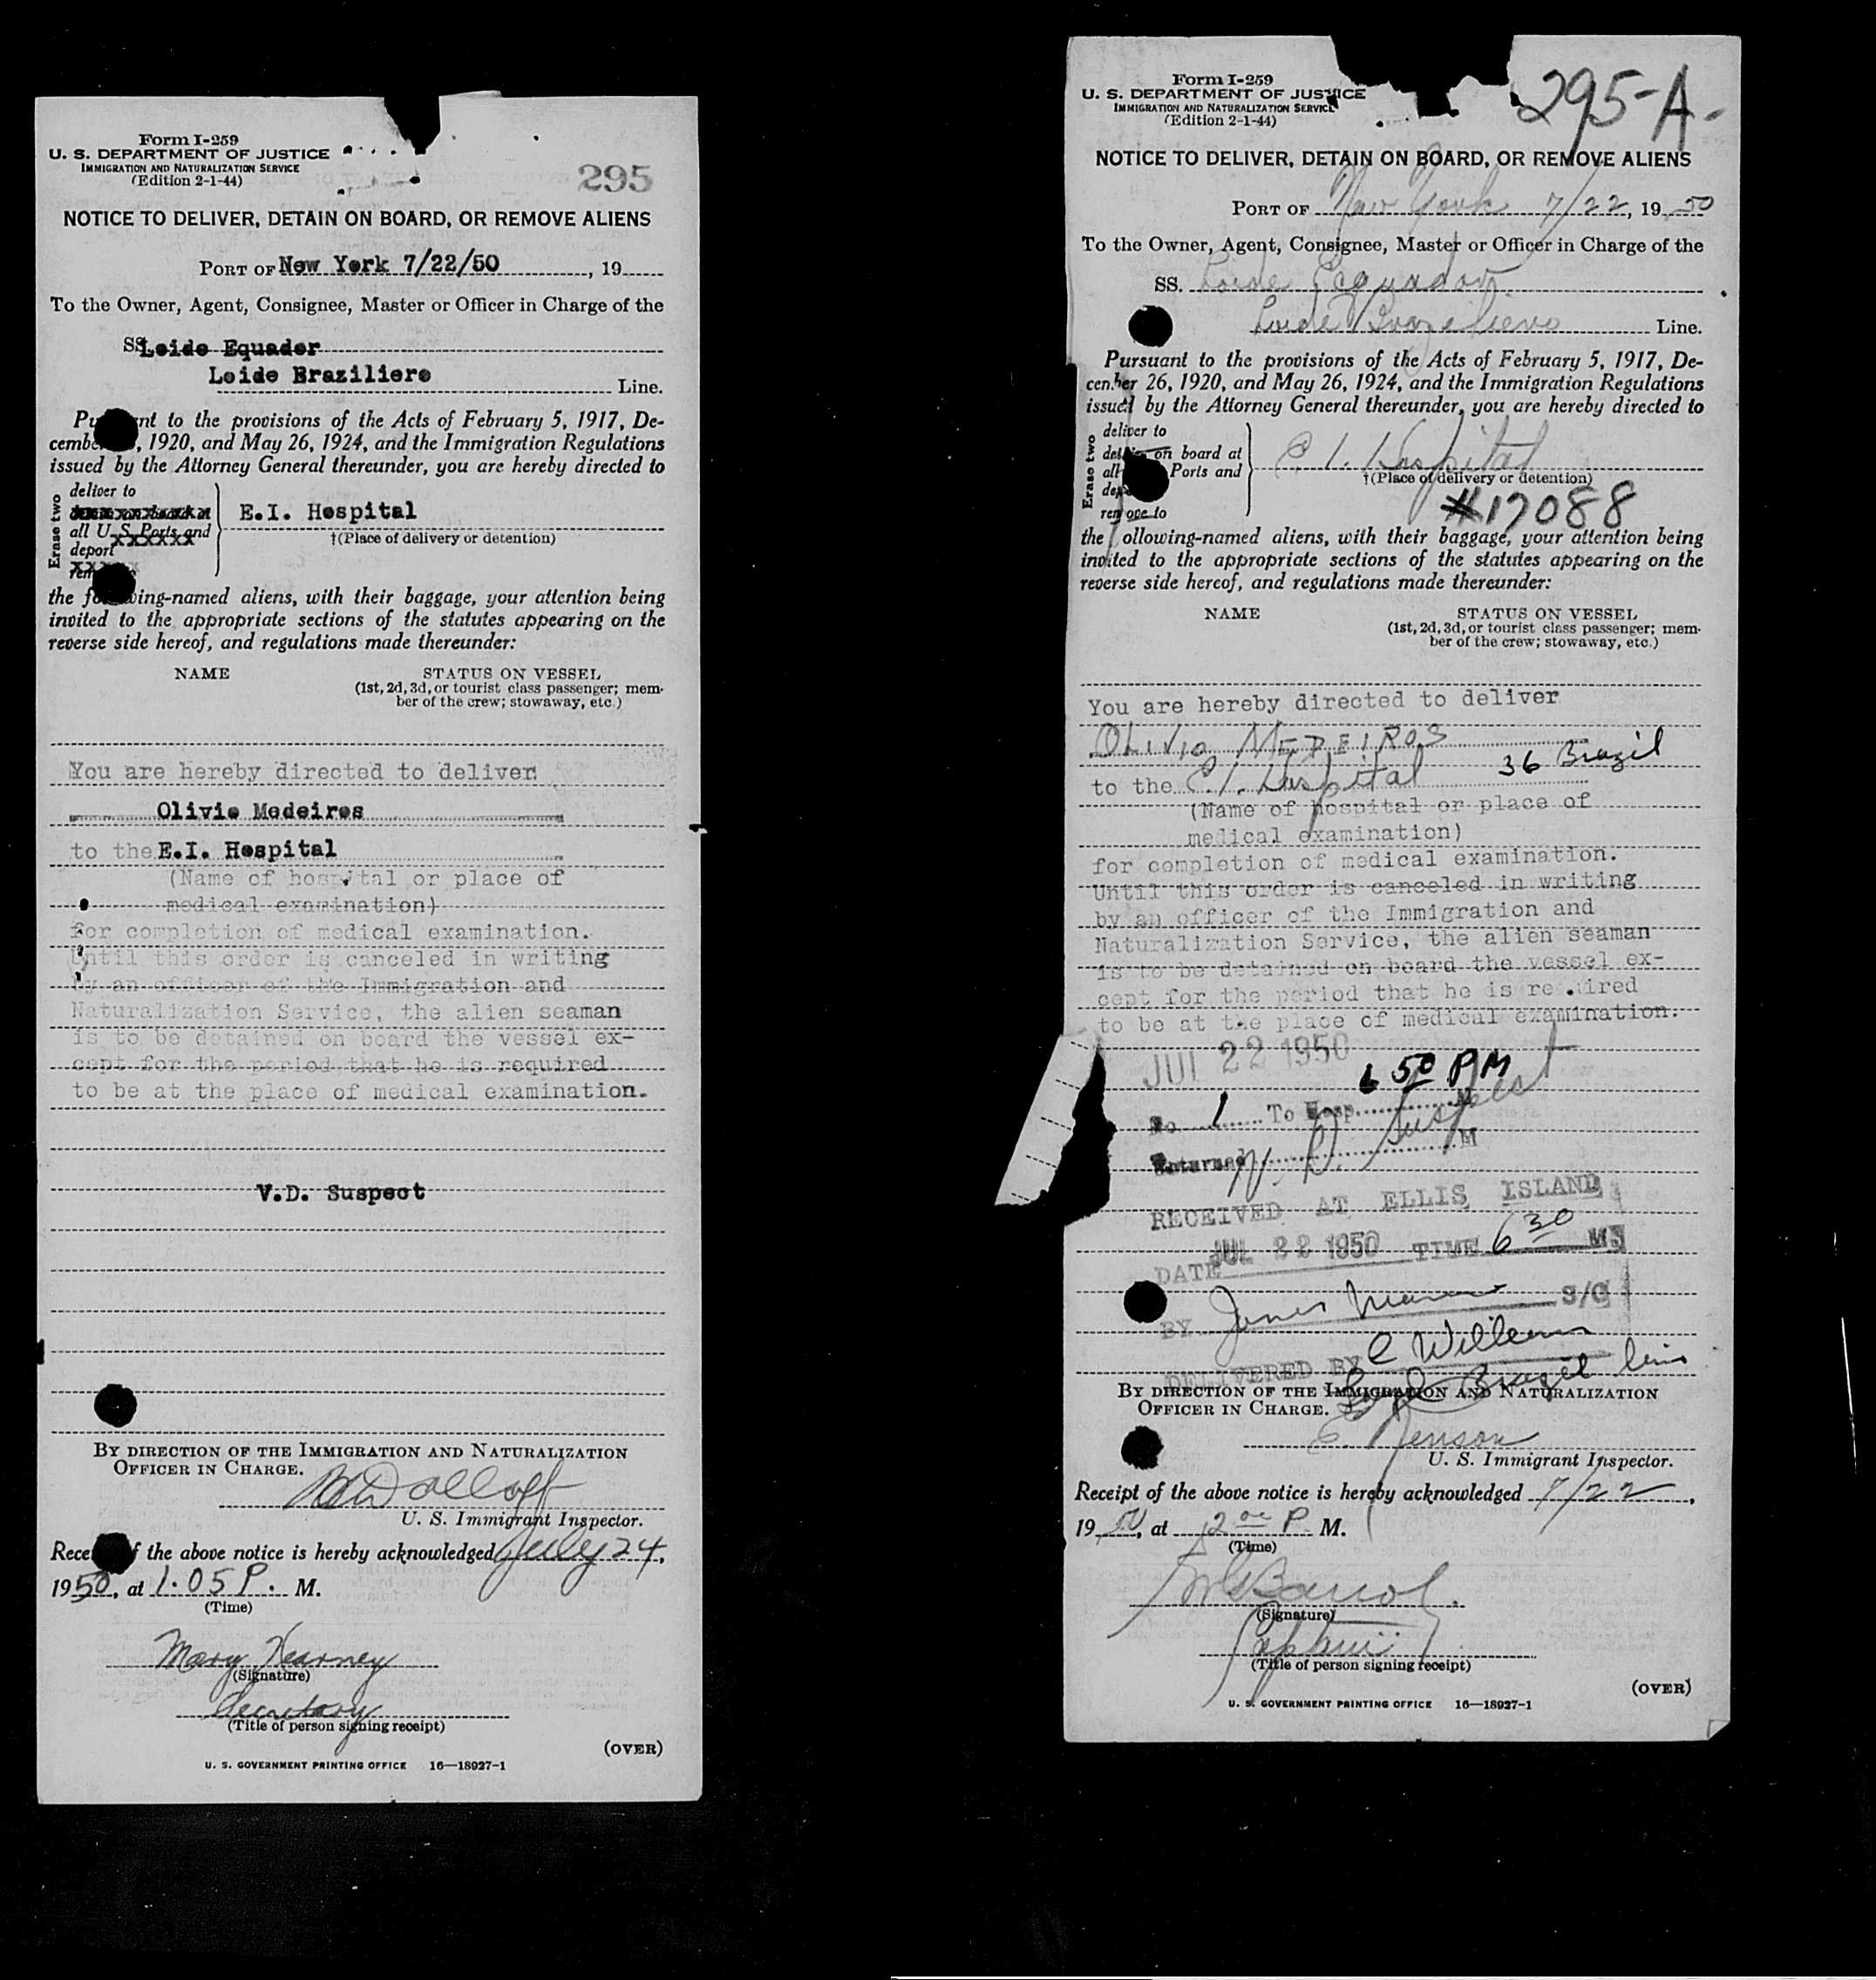 Form I-259
U. S. DEPARTMENT OF JUSTICE
IMMIGRATION AND NATURALIZATION SERVICE
(Edition 2-1-44)
295
NOTICE TO DELIVER, DETAIN ON BOARD, OR REMOVE ALIENS
PORT OF New York 7/22/50, 19
To the Owner, Agent, Consignee, Master or Officer in Charge of the
SS Loide Equador
Loide Braziliero Line.
to the provisions of the Acts of February 5, 1917, De-
, 1920, and May 26, 1924, and the Immigration Regulations
issued by the Attorney General thereunder, you are hereby directed to
Erase two
deliver to
all U. S. Ports and
deport
E.I. Hospital
†(Place of delivery or detention)
the following-named aliens, with their baggage, your attention being
invited to the appropriate sections of the statutes appearing on the
reverse side hereof, and regulations made thereunder:
NAME STATUS ON VESSEL
(1st, 2d, 3d, or tourist class passenger; mem-
ber of the crew; stowaway, etc.)
You are hereby directed to deliver
Olivio Medeiros
to the E.I. Hospital
(Name of hospital or place of
medical examination)
for completion of medical examination.
Until this order is canceled in writing
by an officer of the Immigration and
Naturalization Service, the alien seaman
is to be detained on board the vessel ex-
cept for the period that he is required
to be at the place of medical examination.
V.D. Suspect
BY DIRECTION OF THE IMMIGRATION AND NATURALIZATION
OFFICER IN CHARGE.
U. S. Immigrant Inspector.
the above notice is hereby acknowledged July 24,
1950, at 1.05 P. M.
(Time)
Mary Kearney
(Signature)
Secretary
(Title of person signing receipt)
(OVER)
U. S. GOVERNMENT PRINTING OFFICE 16—18927-1
Form I-259
U. S. DEPARTMENT OF JUSTICE
IMMIGRATION AND NATURALIZATION SERVICE
(Edition 2-1-44)
295-A-
NOTICE TO DELIVER, DETAIN ON BOARD, OR REMOVE ALIENS
PORT OF New York 7/22, 19 50
To the Owner, Agent, Consignee, Master or Officer in Charge of the
SS. Loide Equador
Loide Line.
Pursuant to the provisions of the Acts of February 5, 1917, De-
cember 26, 1920, and May 26, 1924, and the Immigration Regulations
issued by the Attorney General thereunder, you are hereby directed to
Erase two
deliver to
on board at
all Ports and
remove to
E. I. Hospital
†(Place of delivery or detention)
#17088
the following-named aliens, with their baggage, your attention being
invited to the appropriate sections of the statutes appearing on the
reverse side hereof, and regulations made thereunder:
NAME STATUS ON VESSEL
(1st, 2d, 3d, or tourist class passenger; mem-
ber of the crew; stowaway, etc.)
You are hereby directed to deliver
OLIVIO MEDEIROS
36 Brazil
to the E. I. Hospital
(Name of hospital or place of
medical examination)
for completion of medical examination.
Until this order is canceled in writing
by an officer of the Immigration and
Naturalization Service, the alien seaman
is to be detained on board the vessel ex-
cept for the period that he is required
to be at the place of medical examination.
JUL 22 1950
6 50 PM
No 1 To Hosp. M
Returned M
V. D. Suspect
RECEIVED AT ELLIS ISLAND
DATE JUL 22 1950 TIME 6 30 M
BY S/G
DELIVERED BY C Williams
Brazil line
BY DIRECTION OF THE IMMIGRATION AND NATURALIZATION
OFFICER IN CHARGE.
U. S. Immigrant Inspector.
Receipt of the above notice is hereby acknowledged 7/22,
1950, at P. M.
(Time)
(Signature)
Captain
(Title of person signing receipt)
(OVER)
U. S. GOVERNMENT PRINTING OFFICE 16—18927-1